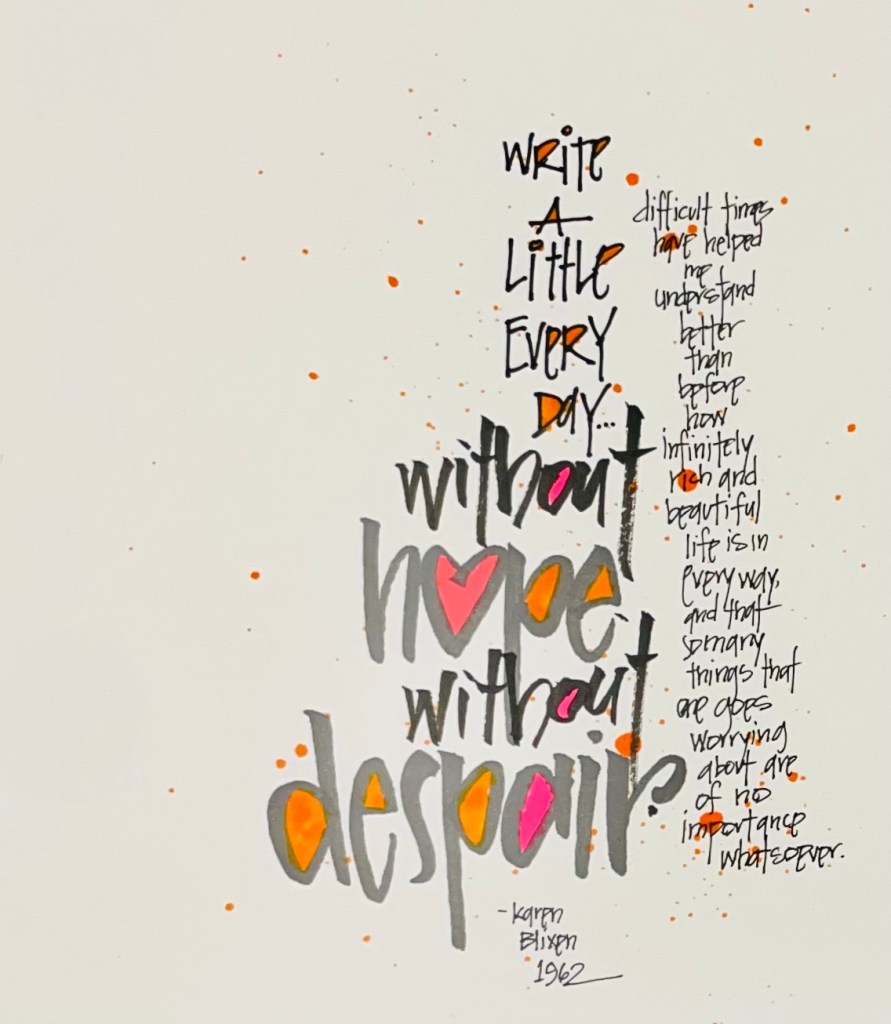 WRITE
A
LITTLE
EVERY
DAY...
without
hope
without
despair.
-Karen
Blixen
1962
difficult times
have helped
me
understand
better
than
before
how
infinitely
rich and
beautiful
life is in
every way,
and that
so many
things that
one goes
worrying
about are
of no
importance
whatsoever.